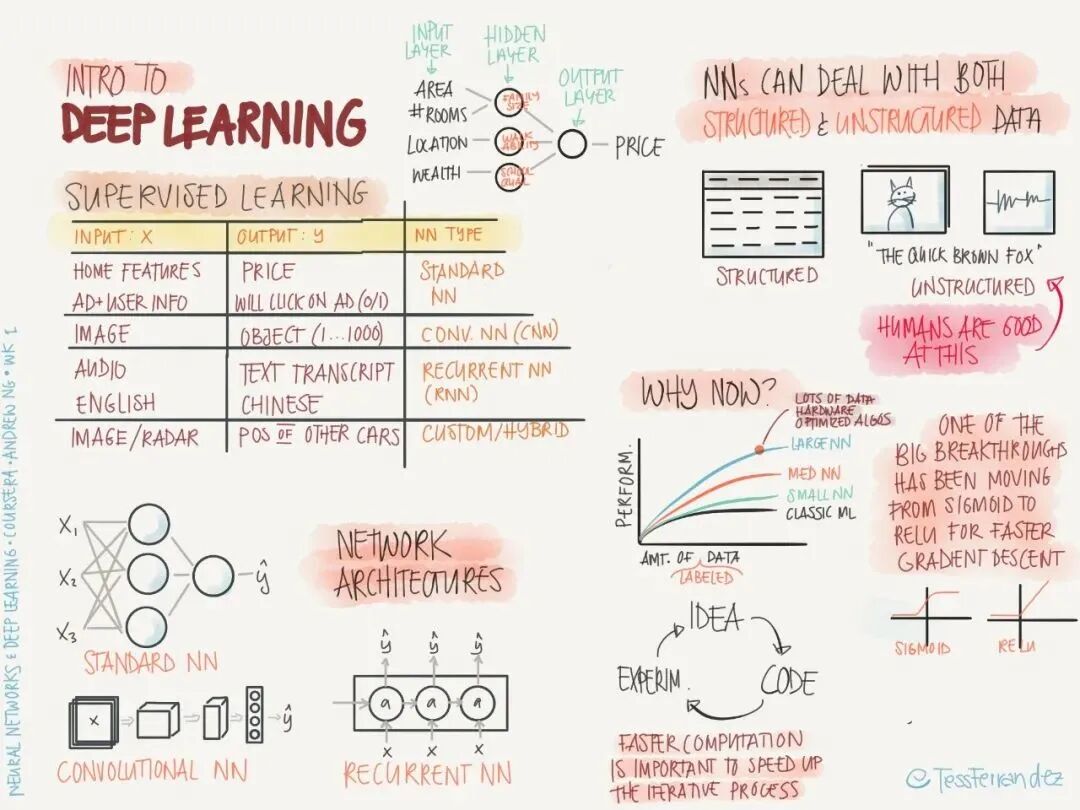 INTRO TO
DEEP LEARNING
INPUT LAYER
HIDDEN LAYER
OUTPUT LAYER
AREA
#ROOMS
LOCATION
WEALTH
FAMILY SIZE
WALK ABILITY
SCHOOL QUAL
PRICE
SUPERVISED LEARNING
INPUT: X OUTPUT: y NN TYPE
HOME FEATURES PRICE STANDARD
AD+USER INFO WILL CLICK ON AD (0/1) NN
IMAGE OBJECT (1...1000) CONV. NN (CNN)
AUDIO TEXT TRANSCRIPT RECURRENT NN
ENGLISH CHINESE (RNN)
IMAGE/RADAR POS OF OTHER CARS CUSTOM/HYBRID
NNs CAN DEAL WITH BOTH
STRUCTURED & UNSTRUCTURED DATA
STRUCTURED
"THE QUICK BROWN FOX"
UNSTRUCTURED
HUMANS ARE GOOD
AT THIS
WHY NOW?
LOTS OF DATA
HARDWARE
OPTIMIZED ALGOS
LARGE NN
MED NN
SMALL NN
CLASSIC ML
PERFORM.
AMT. OF DATA
LABELED
ONE OF THE
BIG BREAKTHROUGHS
HAS BEEN MOVING
FROM SIGMOID TO
RELU FOR FASTER
GRADIENT DESCENT
SIGMOID RELU
NETWORK
ARCHITECTURES
X1
X2
X3
ŷ
STANDARD NN
X
ŷ
CONVOLUTIONAL NN
ŷ ŷ ŷ
a a a
X X X
RECURRENT NN
IDEA
EXPERIM.
CODE
FASTER COMPUTATION
IS IMPORTANT TO SPEED UP
THE ITERATIVE PROCESS
@TessFerrandez
NEURAL NETWORKS & DEEP LEARNING • COURSERA • ANDREW NG • WK 1